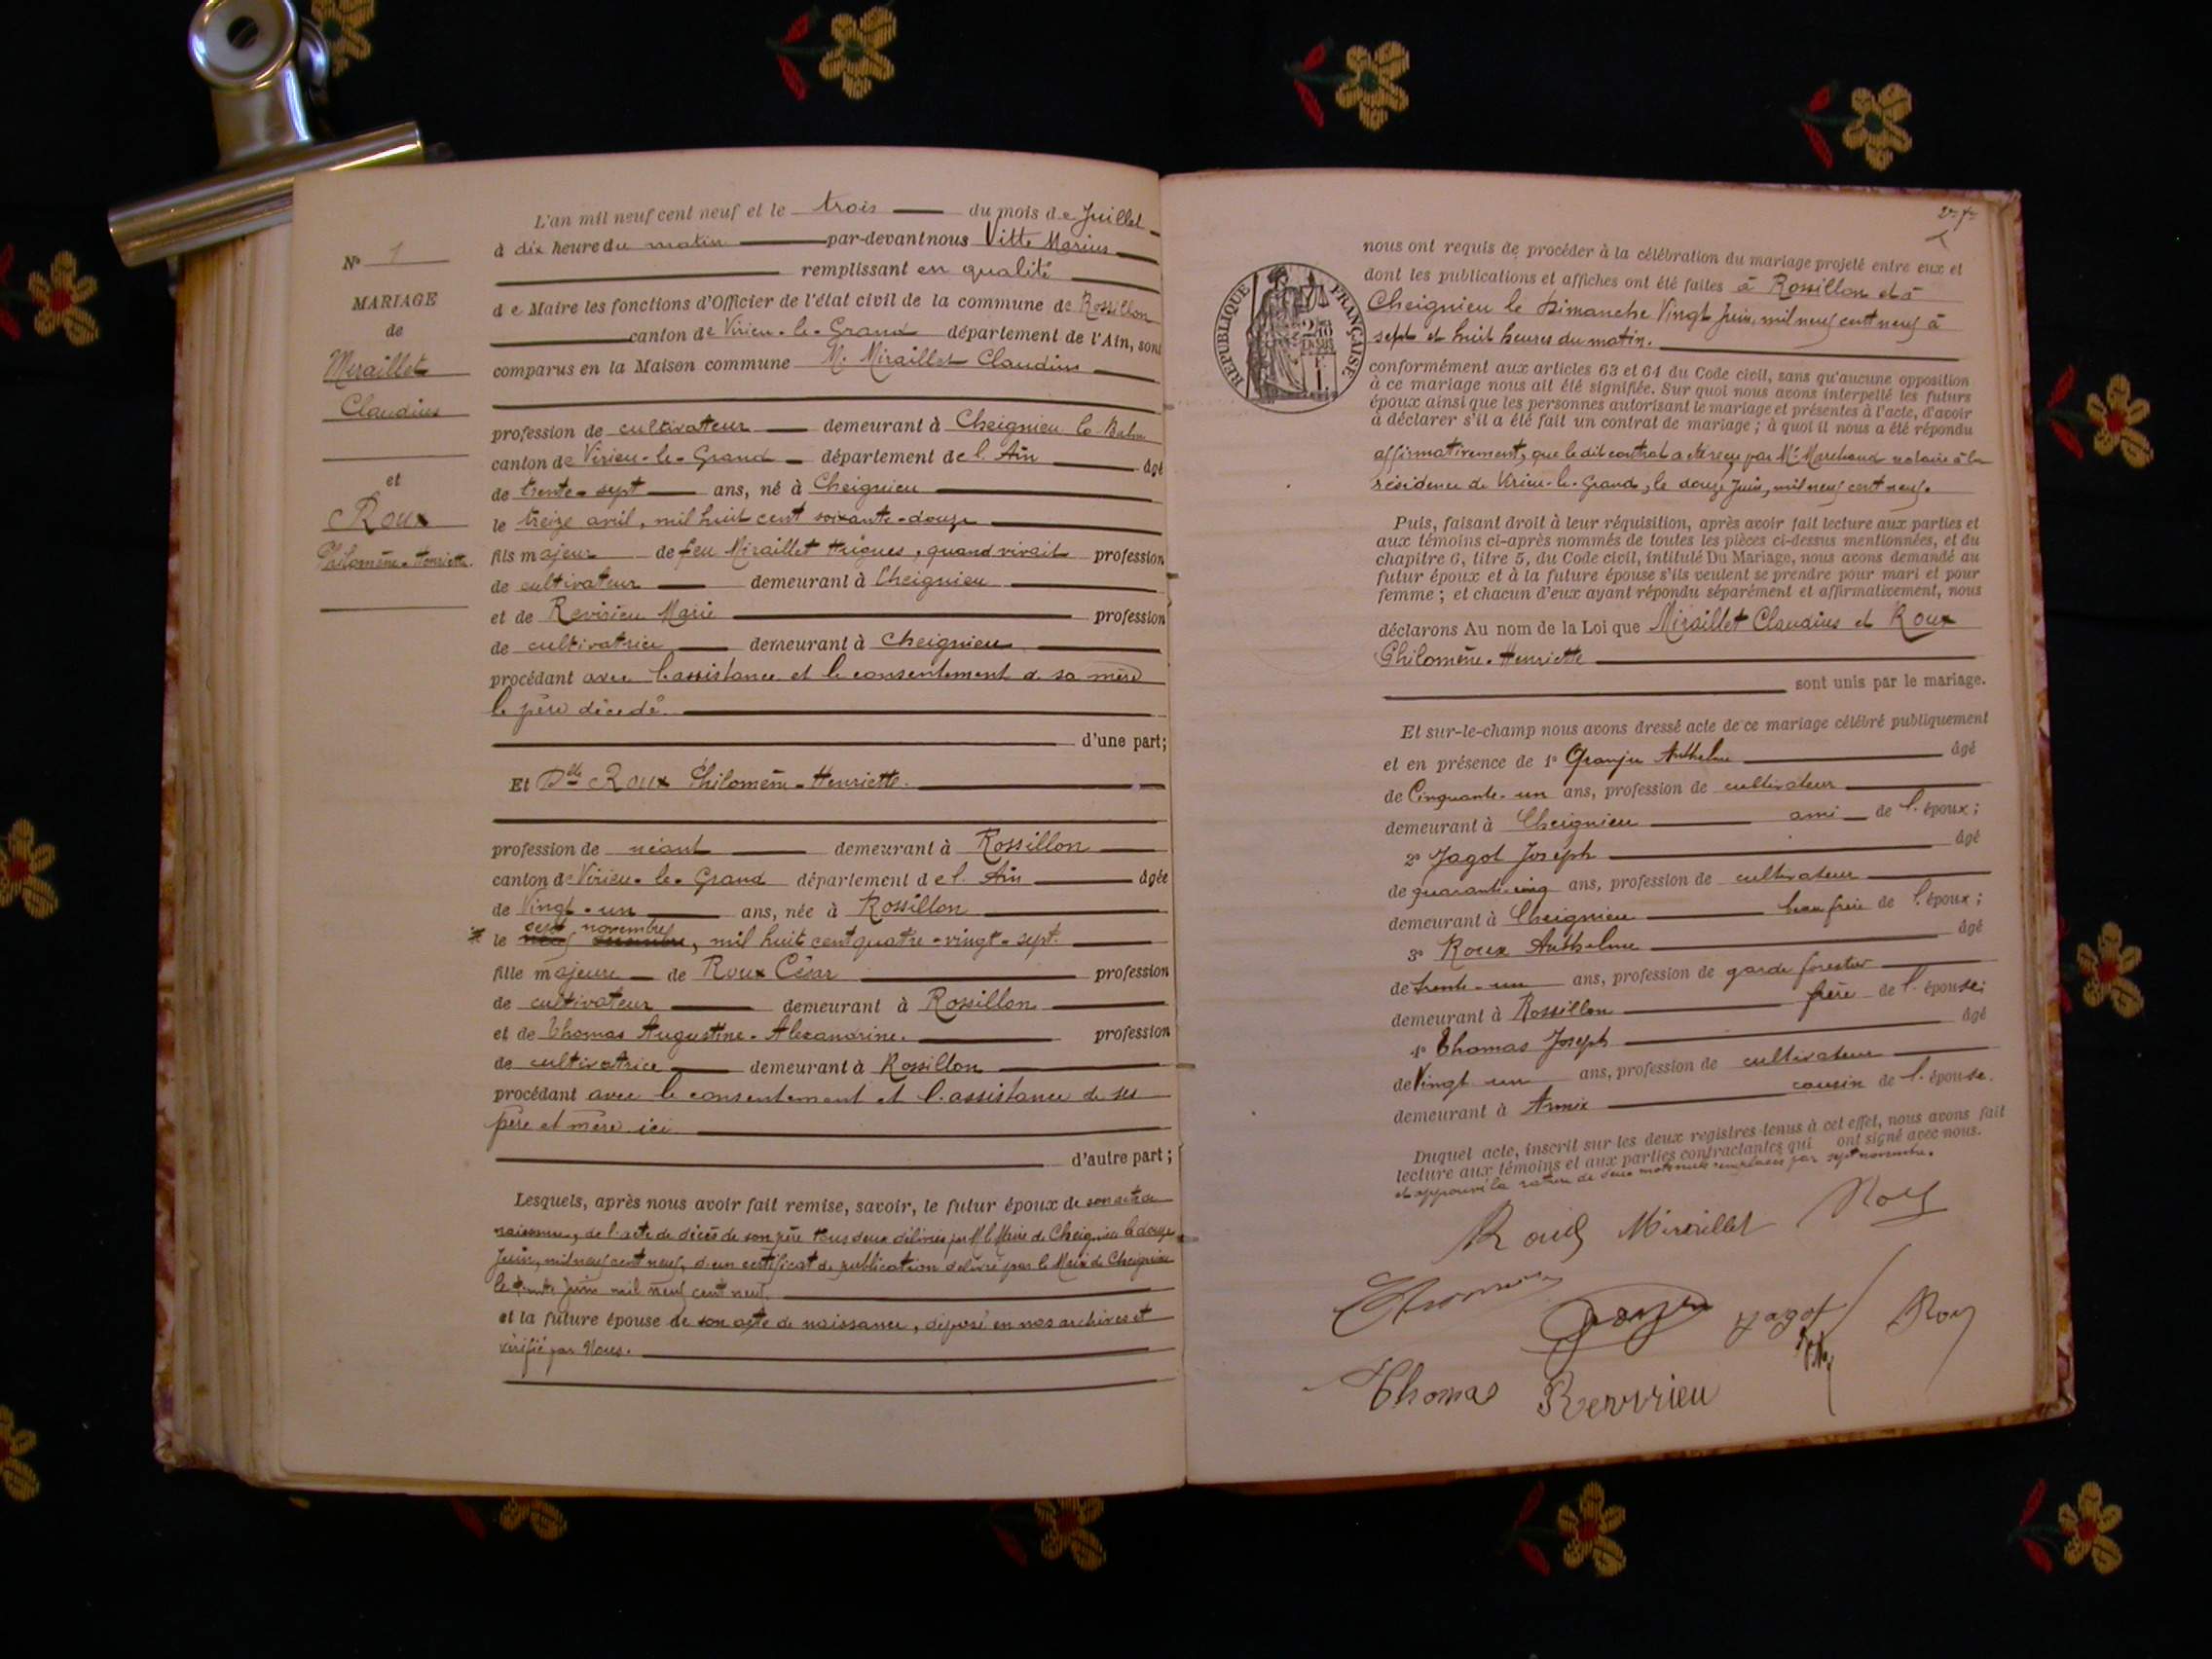 N° 1
MARIAGE
de
Miraillet
Claudius
et
Roux
Philomène-Henriette.
L'an mil neuf cent neuf et le trois du mois de Juillet
à dix heure du matin par-devant nous Vitte Marius
remplissant en qualité
de Maire les fonctions d'Officier de l'état civil de la commune de Rossillon
canton de Virieu-le-Grand département de l'Ain, sont
comparus en la Maison commune M. Miraillet Claudius
profession de cultivateur demeurant à Cheignieu la Balme
canton de Virieu-le-Grand département de l'Ain âgé
de trente-sept ans, né à Cheignieu
le treize avril, mil huit cent soixante-douze
fils majeur de feu Miraillet Hugues, quand vivait profession
de cultivateur demeurant à Cheignieu
et de Revirieu Marie profession
de cultivatrice demeurant à Cheignieu
procédant avec l'assistance et le consentement de sa mère
le père décédé.
d'une part;
Et Dlle Roux Philomène-Henriette.
profession de néant demeurant à Rossillon
canton de Virieu-le-Grand département de l'Ain âgée
de Vingt-un ans, née à Rossillon
sept novembre
le neuf décembre, mil huit cent quatre-vingt-sept.
fille majeure de Roux César profession
de cultivateur demeurant à Rossillon
et de Thomas Augustine-Alexandrine. profession
de cultivatrice demeurant à Rossillon
procédant avec le consentement et l'assistance de ses
père et mère ici
d'autre part;
Lesquels, après nous avoir fait remise, savoir, le futur époux de son acte de
naissance, de l'acte de décès de son père tous deux délivrés par M. le Maire de Cheignieu le douze
Juin, mil neuf cent neuf, d'un certificat de publication délivré par le Maire de Cheignieu
le trente Juin mil neuf cent neuf.
et la future épouse de son acte de naissance, déposé en nos archives et
vérifié par Nous.
nous ont requis de procéder à la célébration du mariage projeté entre eux et
dont les publications et affiches ont été faites à Rossillon et à
Cheignieu le Dimanche Vingt Juin, mil neuf cent neuf à
sept et huit heures du matin.
RÉPUBLIQUE FRANÇAISE
conformément aux articles 63 et 64 du Code civil, sans qu'aucune opposition
à ce mariage nous ait été signifiée. Sur quoi nous avons interpellé les futurs
époux ainsi que les personnes autorisant le mariage et présentes à l'acte, d'avoir
à déclarer s'il a été fait un contrat de mariage; à quoi il nous a été répondu
affirmativement, que le dit contrat a été reçu par Me Marchand notaire à la
résidence de Virieu-le-Grand, le douze Juin, mil neuf cent neuf.
Puis, faisant droit à leur réquisition, après avoir fait lecture aux parties et
aux témoins ci-après nommés de toutes les pièces ci-dessus mentionnées, et du
chapitre 6, titre 5, du Code civil, intitulé Du Mariage, nous avons demandé au
futur époux et à la future épouse s'ils veulent se prendre pour mari et pour
femme; et chacun d'eux ayant répondu séparément et affirmativement, nous
déclarons Au nom de la Loi que Miraillet Claudius et Roux
Philomène-Henriette
sont unis par le mariage.
Et sur-le-champ nous avons dressé acte de ce mariage célébré publiquement
et en présence de 1° Granju Anthelme âgé
de Cinquante-un ans, profession de cultivateur
demeurant à Cheignieu ami de l'époux;
2° Jagot Joseph âgé
de quarante-cinq ans, profession de cultivateur
demeurant à Cheignieu beau frère de l'époux;
3° Roux Anthelme âgé
de trente-un ans, profession de garde forestier
demeurant à Rossillon frère de l'épouse;
4° Thomas Joseph âgé
de Vingt un ans, profession de cultivateur
demeurant à Armix cousin de l'épouse.
Duquel acte, inscrit sur les deux registres tenus à cet effet, nous avons fait
lecture aux témoins et aux parties contractantes qui ont signé avec nous.
et approuvé la rature de deux mots nuls remplacés par sept novembre.
Miraillet
Jagot
Thomas Revirieu